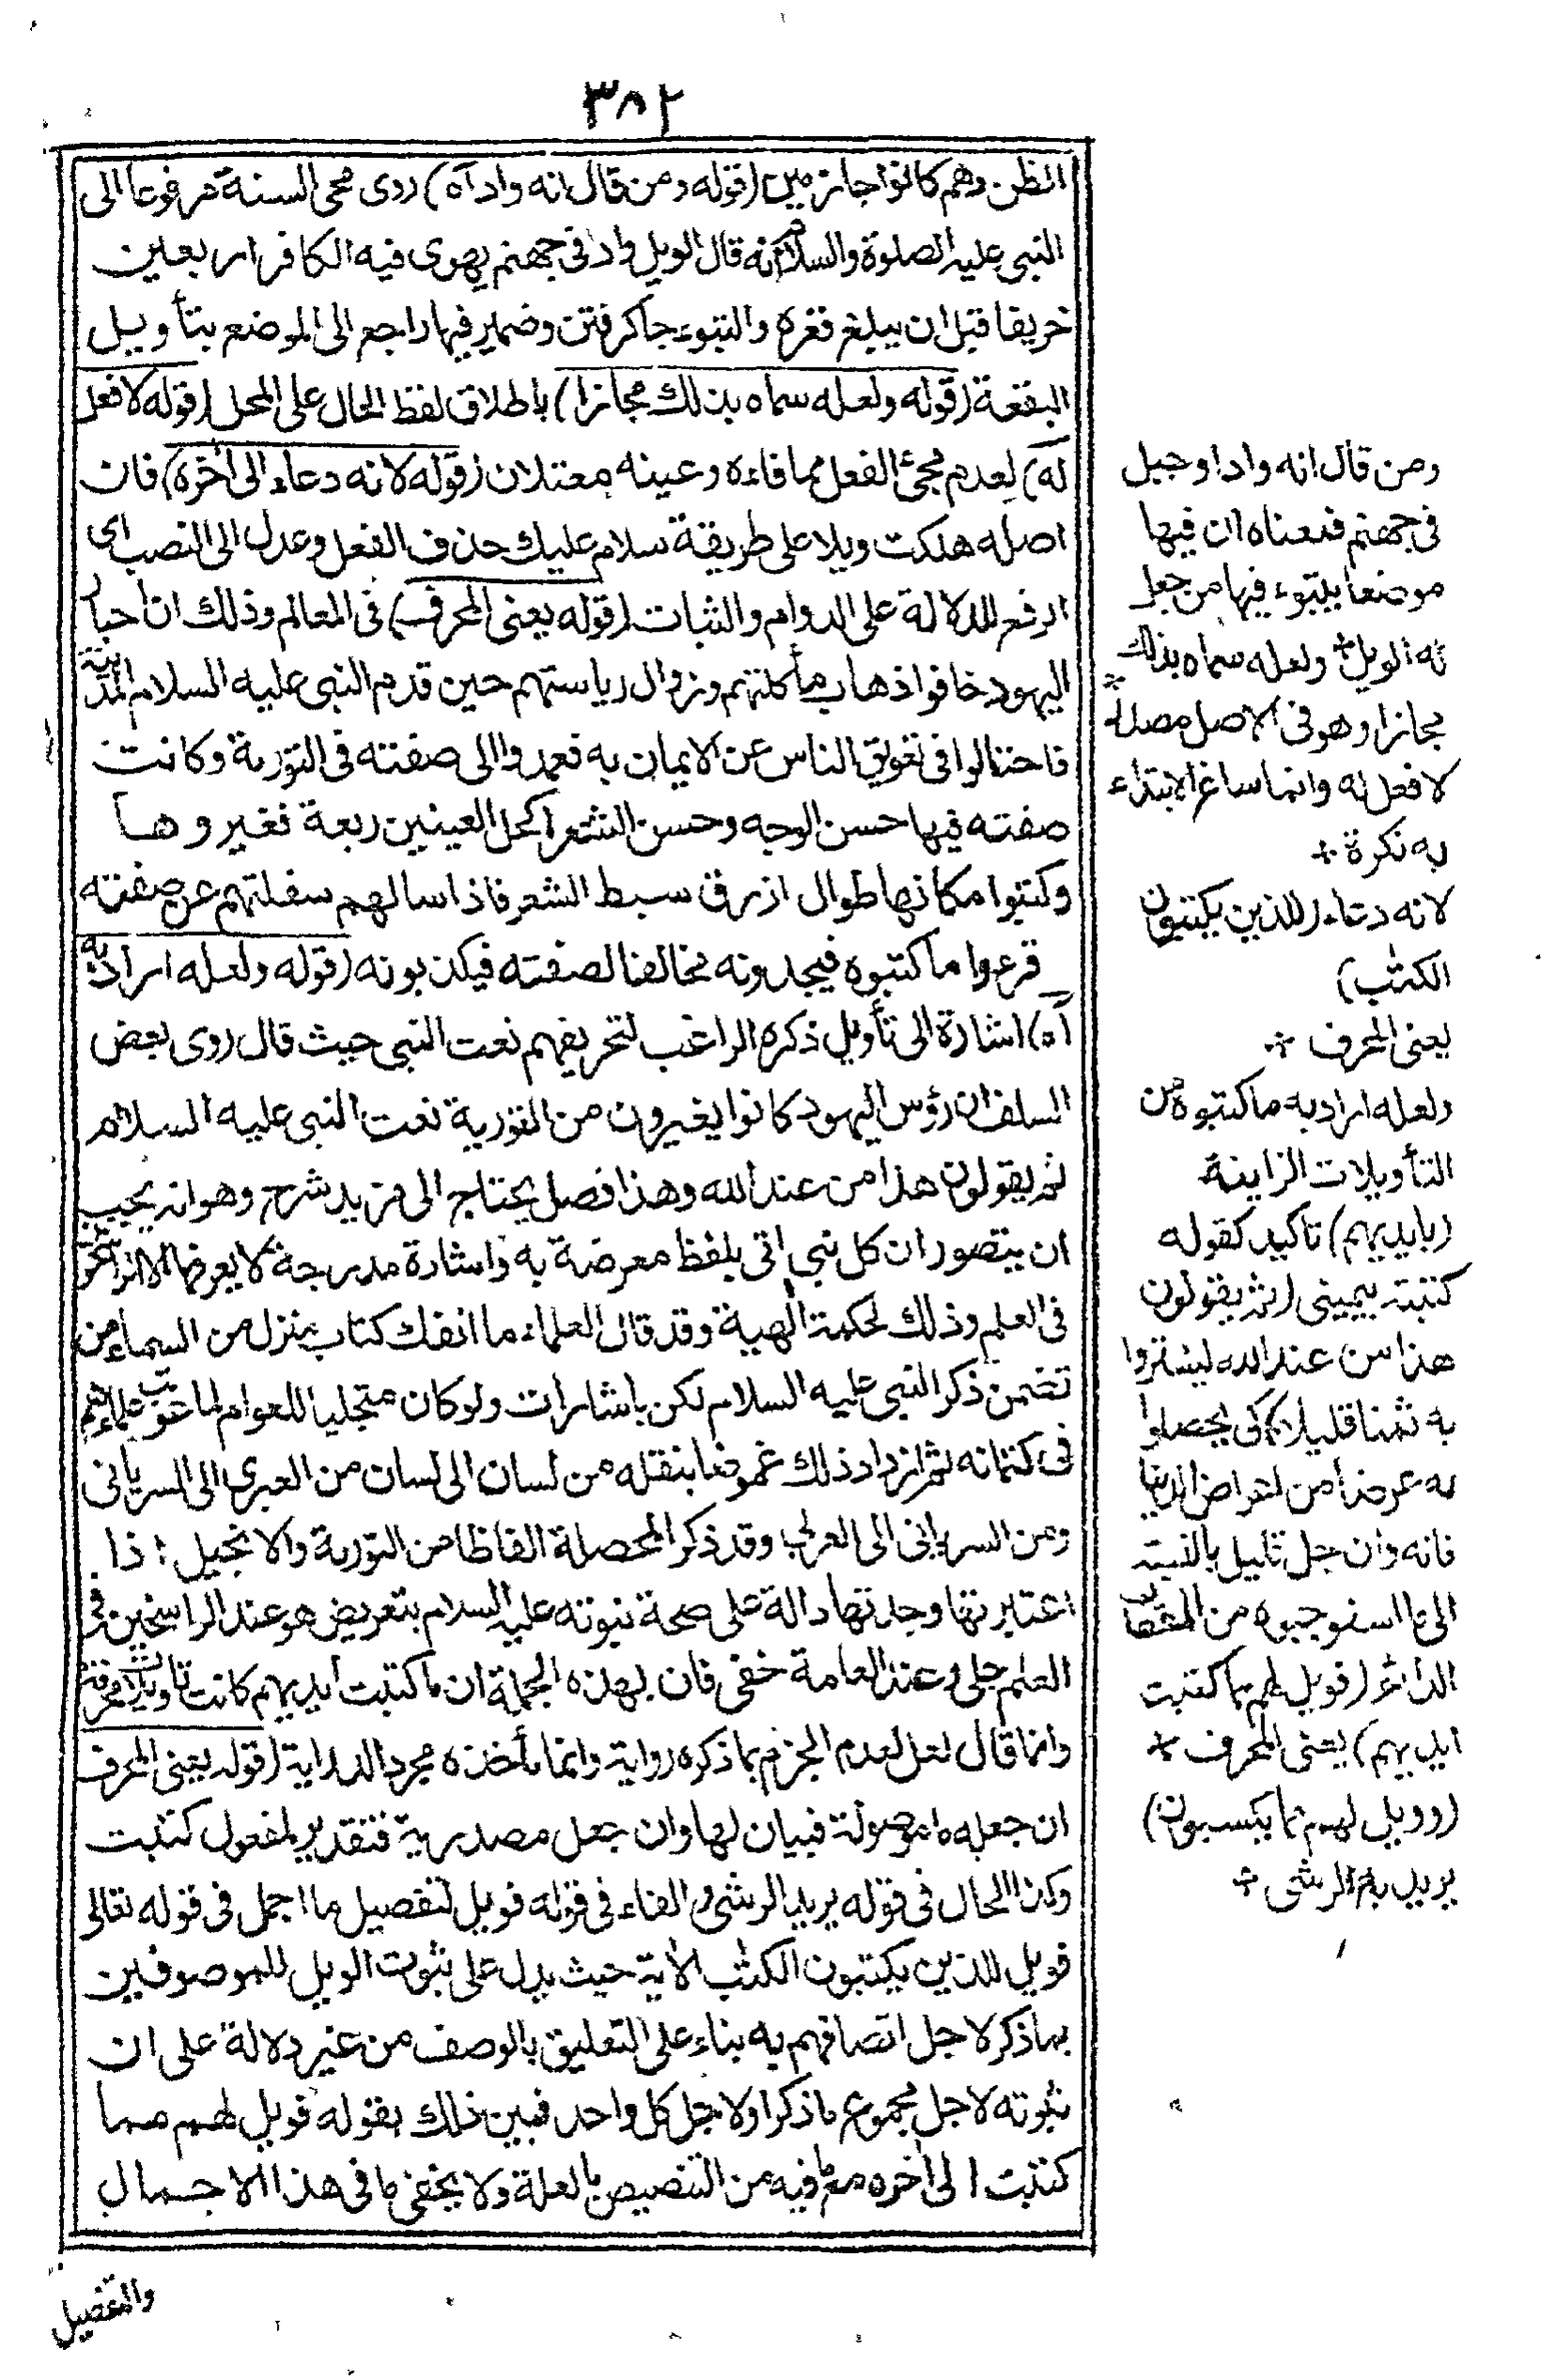 ٣٨٢
الظن وهم كانوا جازمين (قوله ومن قال انه واد آه) روى محى السنة مرفوعا الى
النبى عليه الصلوة والسلام انه قال الويل واد فى جهنم يهوى فيه الكافر اربعين
خريفا قبل ان يبلغ قعره والتبوء جا كرفتن وضمير فيها راجع الى الموضع بتأويل
البقعة (قوله ولعله سماه بذلك مجازا) باطلاق لفظ الحال على المحل (قوله لا فعل
له) لعدم مجئ الفعل مما فاءه وعينه معتلان (قوله لانه دعاء الى آخره) فان
اصله هلكت ويلا على طريقة سلام عليك حذف الفعل وعدل الى النصب اى
الرفع للدلالة على الدوام والثبات (قوله يعنى المحرف) فى المعالم وذلك ان احبار
اليهود خافوا ذهاب مأكلتهم وزوال رياستهم حين قدم النبى عليه السلام المدينة
فاحتالوا فى تعويق الناس عن الايمان به فعمدوا الى صفته فى التورية وكانت
صفته فيها حسن الوجه وحسن الشعر اكحل العينين ربعة فغيروها
وكتبوا مكانها طوال ازرق سبط الشعر فاذا سالهم سفلتهم عن صفته
قرءوا ما كتبوه فيجدونه مخالفا لصفته فيكذبونه (قوله ولعله اراد به
آه) اشارة الى تأويل ذكره الراغب لتحريفهم نعت النبى حيث قال روى بعض
السلف ان رؤس اليهود كانوا يغيرون من التورية نعت النبى عليه السلام
ثم يقولون هذا من عند الله وهذا فصل يحتاج الى مزيد شرح وهو انه يجب
ان يتصور ان كل نبى اتى بلفظ معرضة به واشارة مدرجة لا يعرفها الا الراسخون
فى العلم وذلك لحكمة الهية وقد قال العلماء ما انفك كتاب منزل من السماء من
تضمن ذكر النبى عليه السلام لكن باشارات ولو كان متجليا للعوام لما عوتب علماءهم
فى كتمانه ثم ازداد ذلك غموضا بنقله من لسان الى لسان من العبرى الى السريانى
ومن السريانى الى العربى وقد ذكر المحصلة الفاظا من التورية والانجيل اذا
اعتبرتها وجدتها دالة على صحة نبوته عليه السلام بتعريض هو عند الراسخين فى
العلم جلى وعند العامة خفى فان بهذه الجملة ان ما كتبت ايديهم كانت تاويلات محرفة
وانما قال لعل لعدم الجزم بما ذكره رواية وانما مأخذه مجرد الدراية (قوله يعنى المحرف
ان جعله ما موصولة فبيان لها وان جعل مصدرية فتقدير لمفعول كتبت
وكذا الحال فى قوله يريد الرشى والفاء فى قوله فويل لتفصيل ما اجمل فى قوله تعالى
فويل للذين يكتبون الكتب الآية حيث يدل على ثبوت الويل للموصوفين
بما ذكر لاجل اتصافهم به بناء على التعليق بالوصف من غير دلالة على ان
ثبوته لاجل مجموع ما ذكر او لاجل كل واحد فبين ذلك بقوله فويل لهم مما
كتبت الى آخره مع ما فيه من التنصيص بالعلة ولا يخفى ما فى هذا الاجمال
والتفصيل
ومن قال انه واد او جبل
فى جهنم فمعناه ان فيها
موضعا يتبوء فيها من جعل
له الويل ولعله سماه بذلك
مجازا وهو فى الاصل مصدر
لا فعل له وانما ساغ الابتداء
به نكرة
لانه دعاء (للذين يكتبون
الكتب)
يعنى المحرف
ولعله اراد به ما كتبوه من
التأويلات الزايغة
(بايديهم) تاكيد كقوله
كتبته بيمينى (ثم يقولون
هذا من عند الله ليشتروا
به ثمنا قليلا) كى يحصلوا
به عرضا من اعراض الدنيا
فانه وان جل قليل بالنسبة
الى ما استوجبوه من العقاب
الدائم (فويل لهم مما كتبت
ايديهم) يعنى المحرف
(وويل لهم مما يكسبون)
يريد به الرشى